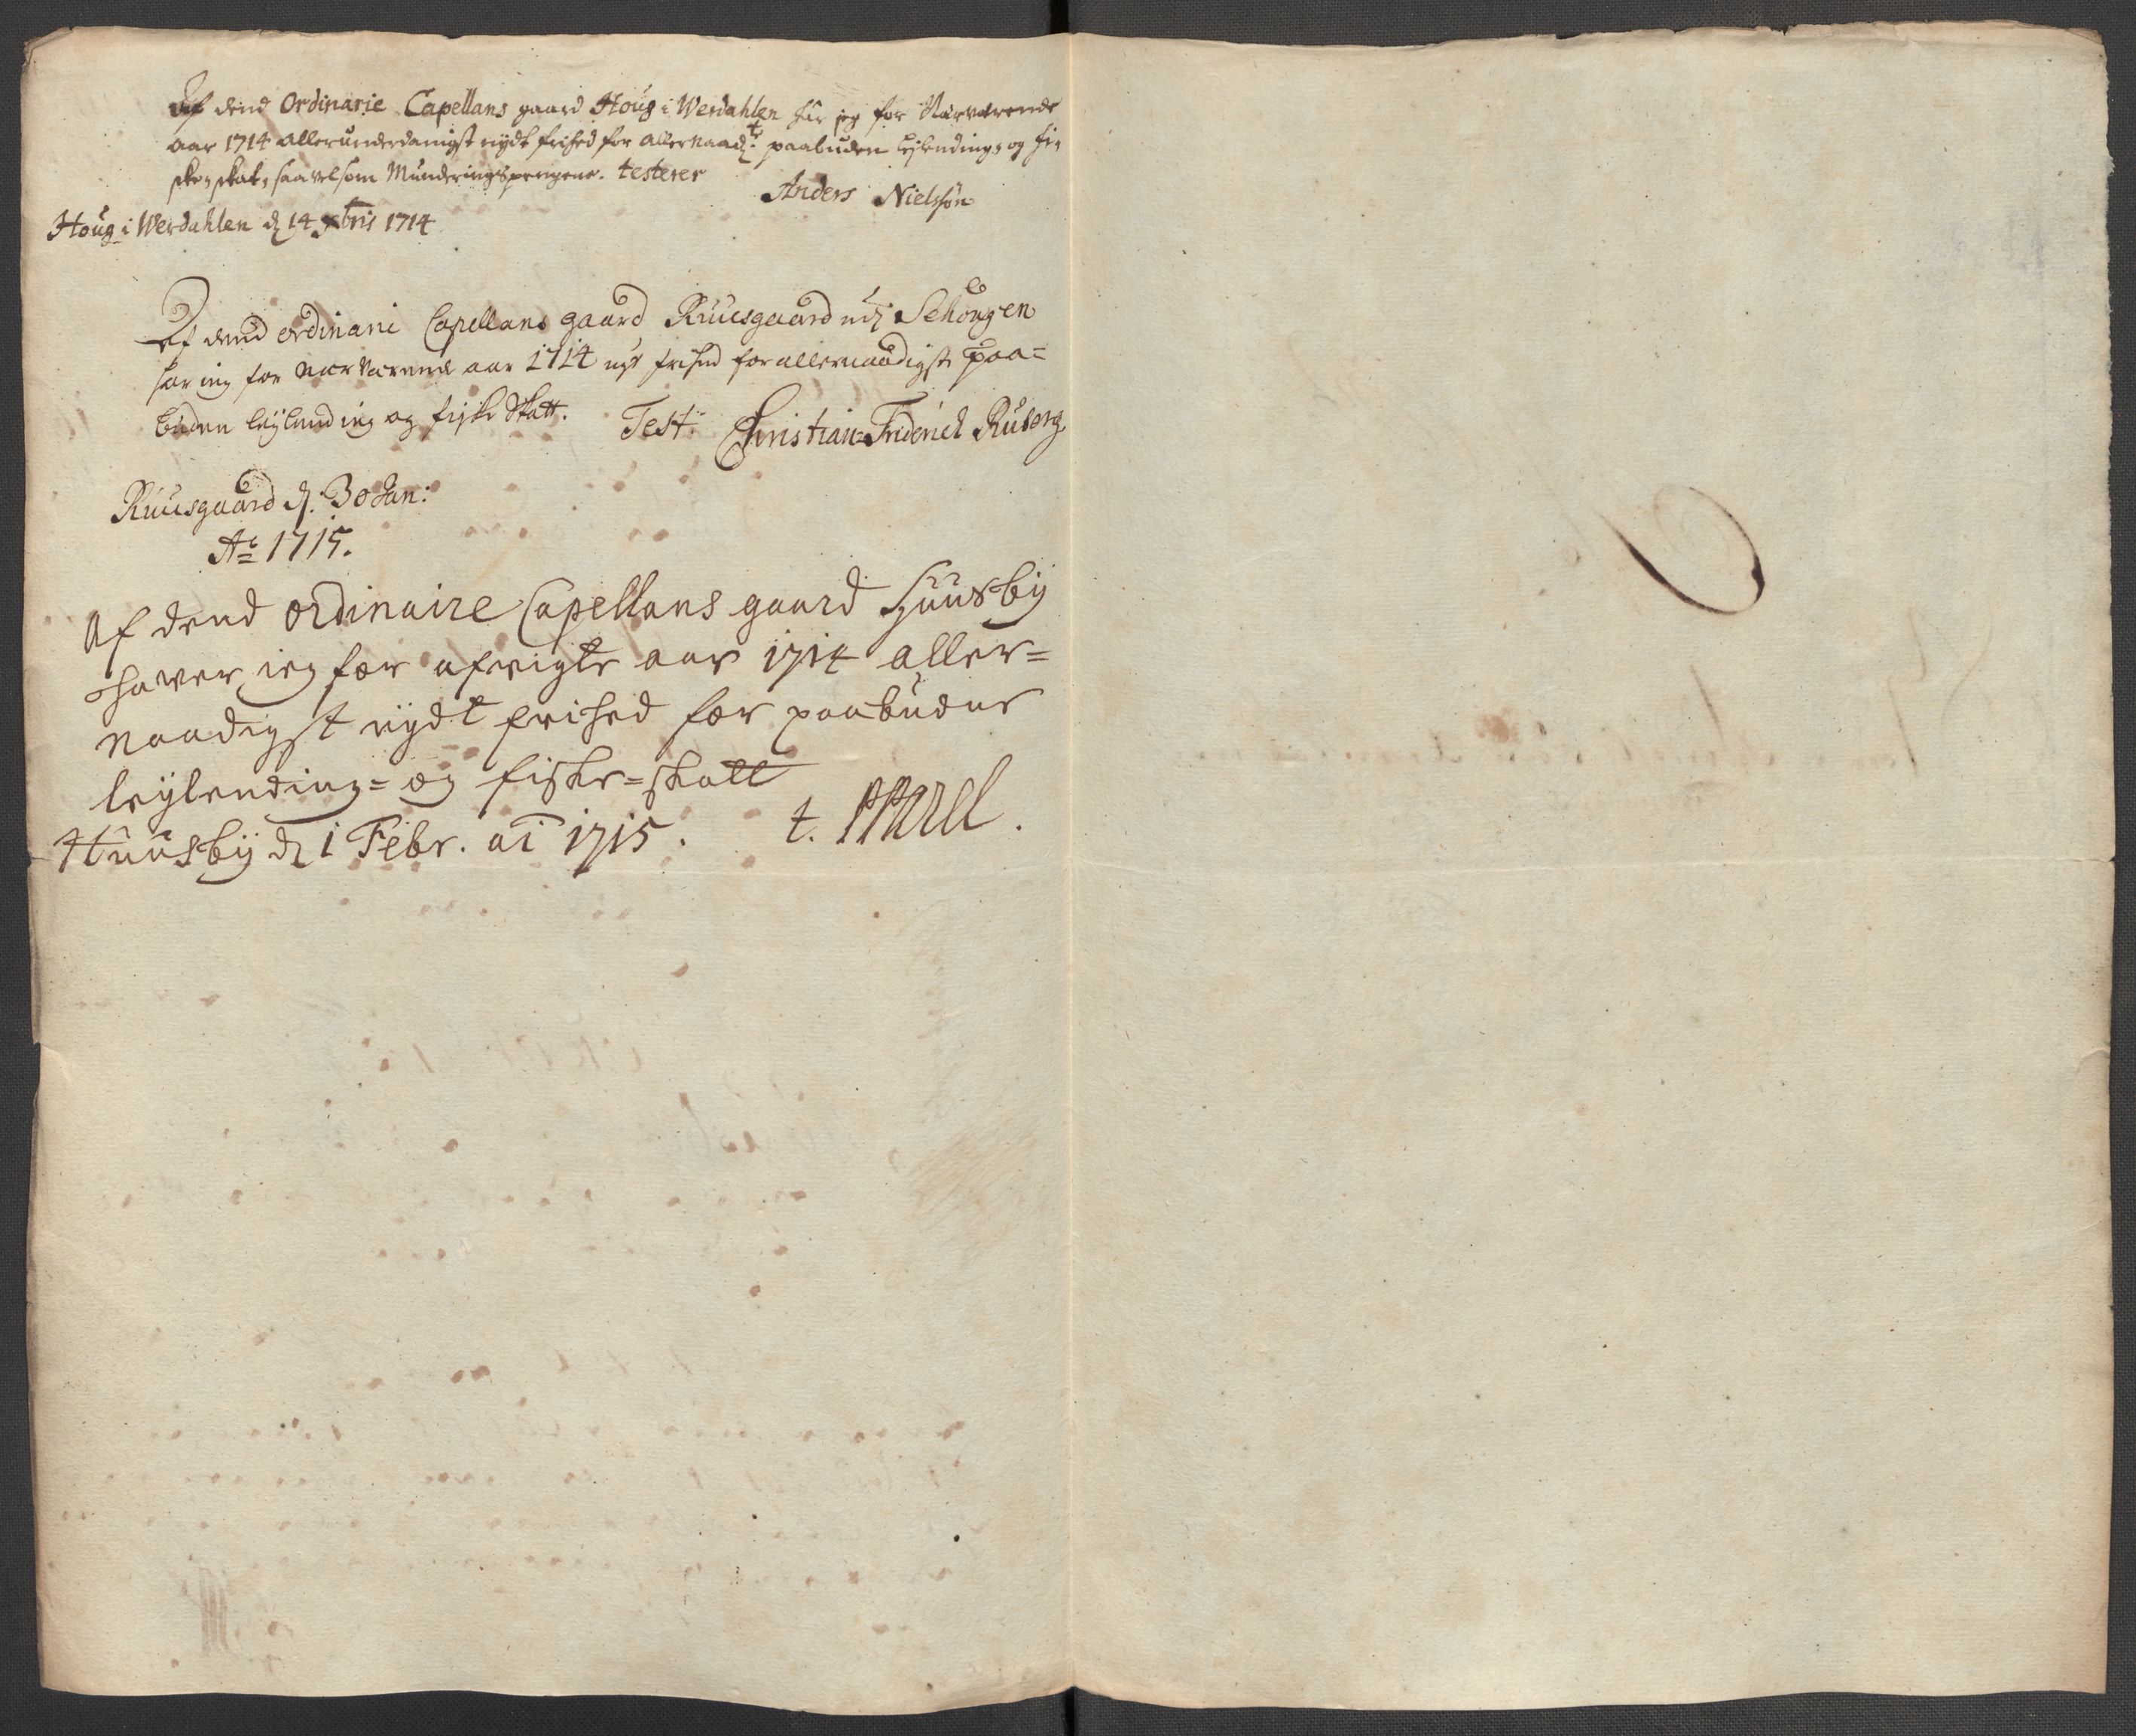 Af dend Ordinarie Capellans gaard Houg i Werdahlen har jeg for Nærværende
aar 1714 allerunderdanigst nydt frihed for allernaadste paabuden Leylendings og Fi,
ske, skat, saavelsom Munderingspengene. testerer
Anders Nielssøn
Houg i Werdahlen d 14 xbris 1714
Af dend ordinarie Capellans gaard Ruusgaard udj Schougen
har ieg for Nærværende aar 1714 nyt frihed for allernaadigst paa=
buden leylending og fiske Skatt.
Test. Christian=Friderich Ruberg
Ruusgaard d. 30 Jan:
Ao 1715.
Af dend ordinaire Capellans gaard Huusbÿ
hawer ieg for afvigte aar 1714 aller=
naadigst nÿdt frihed for paabudne
leÿlending= og fiske=skatt
Huusbÿ d 1 Febr. ai 1715. t.